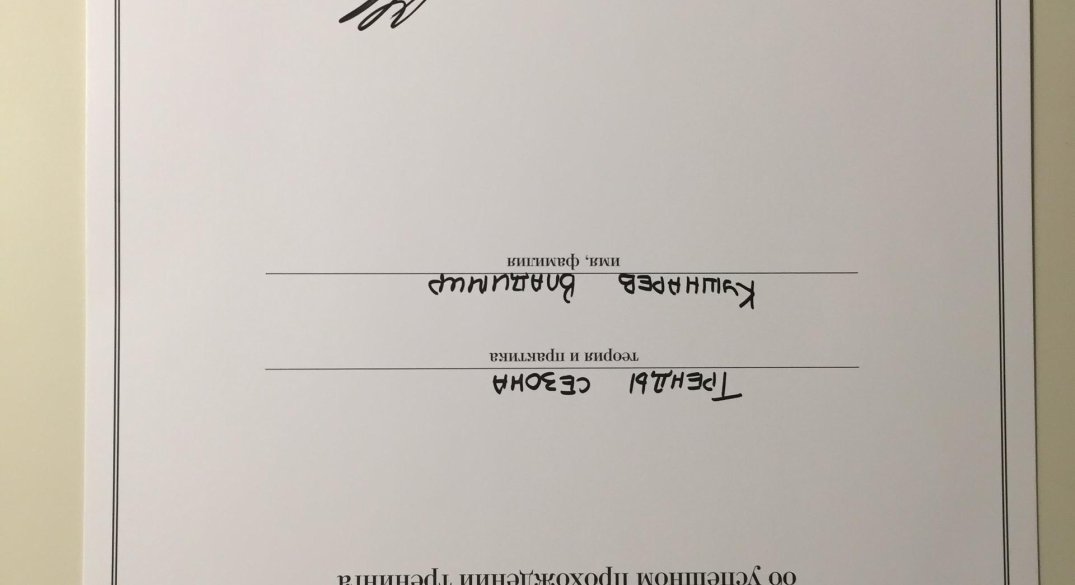 об успешном прохождении тренинга
Тренды сезона
теория и практика
Кушнарев Владимир
имя, фамилия